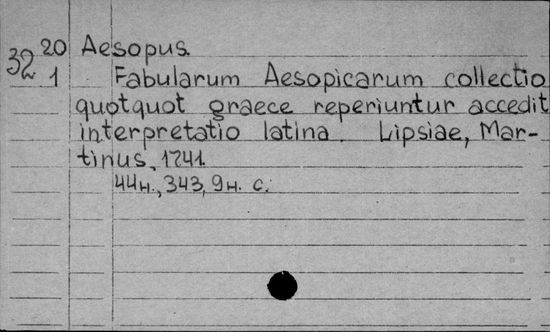 32 20 Aesopus.
1 Fabularum Aesopicarum collectio
quotquot graece reperiuntur accedit
interpretatio latina. Lipsiae, Mar-
tinus, 1741.
44н., 343, 9н. с.